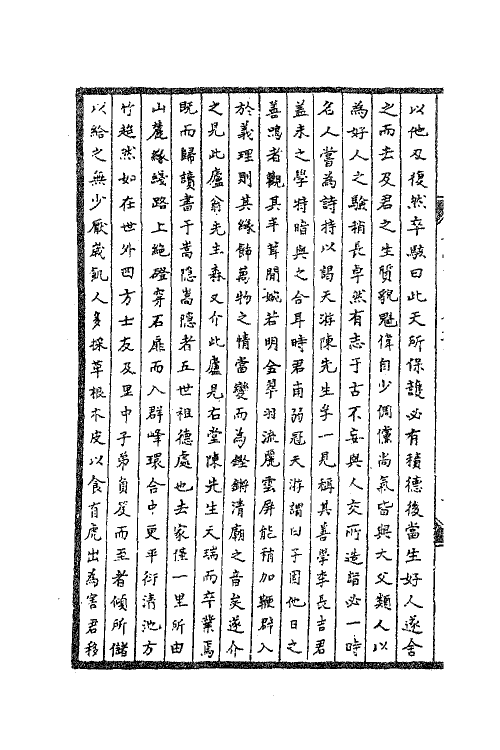 以他刃復然卒駭曰此天所保護必有積德後當生好人遂舍
之而去及君之生質貌魁偉自少倜儻尚氣皆與大父類人以
為好人之驗稍長卓然有志于古不妄與人交所造詣必一時
名人嘗為詩持以謁天游陳先生孚一見稱其善學李長吉君
蓋未之學特暗與之合耳時君甫弱冠天游謂曰子固他日之
善鳴者觀其丰茸閒婉若明金翠羽流麗雲屏能稍加鞭辟入
於義理則其緣飾萬物之情當變而為鏗鏘清廟之音矣遂介
之見此廬翁先生森又介此廬見右堂陳先生天瑞而卒業焉
既而歸讀書于嵩隱嵩隱者五世祖德處也去家僅一里所由
山麓緣綫路上絶磴穿石扉而入群峰環合中更平衍清池方
竹超然如在世外四方士友及里中子弟負笈而至者傾所儲
以給之無少厭歲飢人多採草根木皮以食有虎出為害君移